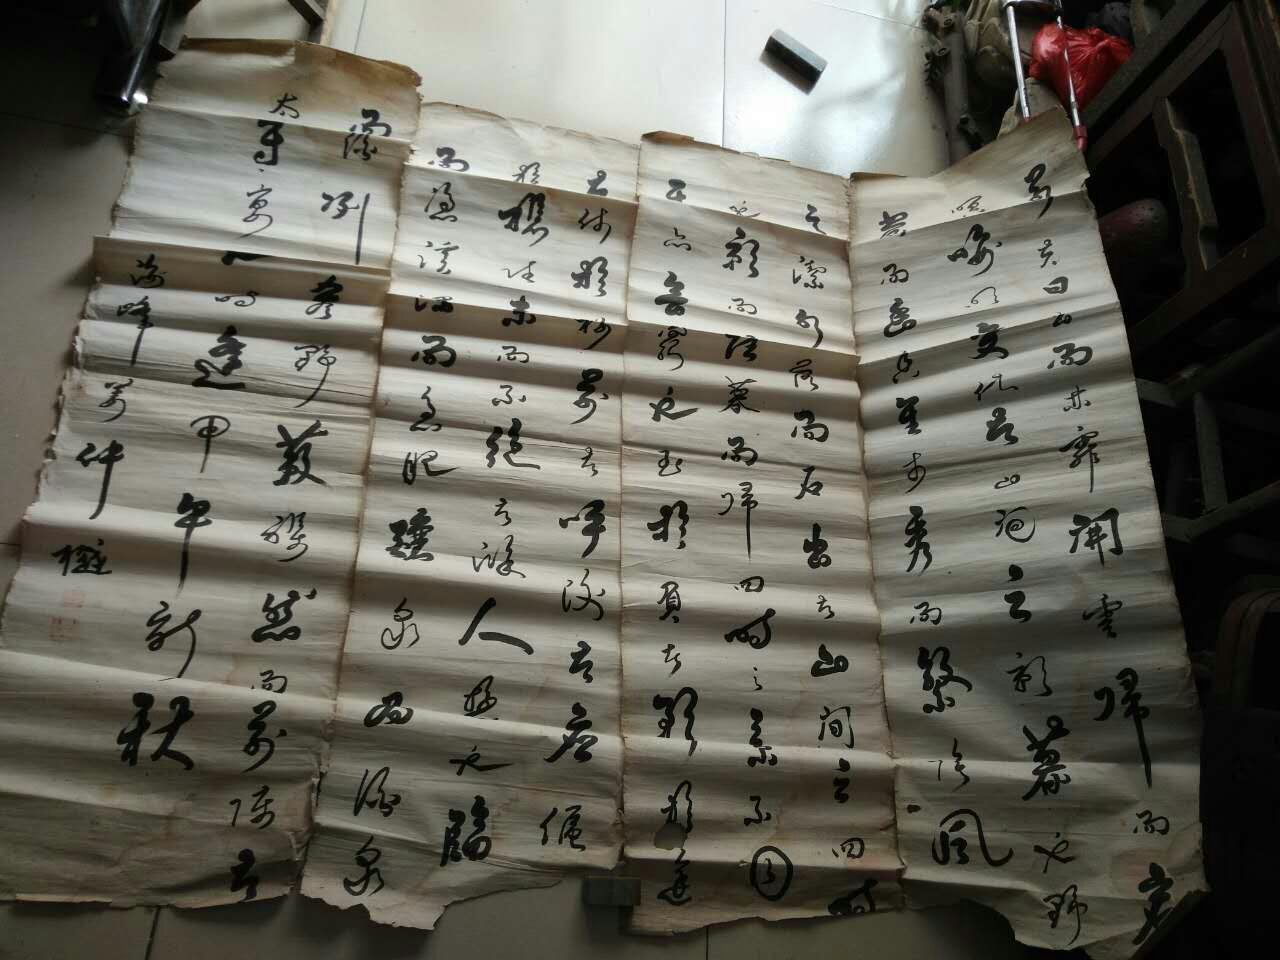 若夫日出而林霏開雲歸而穴
暝晦明變化者山間之朝暮也野
發而幽香佳木秀而繁陰風
潔水落而石出者山間之四時
也朝而往暮而歸四時之景不同
亦無窮也至於負者歌於途
者休於樹前者呼後者應傴
攜往來而不絕者滁人遊也臨
而漁溪深而魚肥釀泉為酒泉
洌肴野蔌雜然而前陳者
太守宴也時逢甲午新秋
海峰